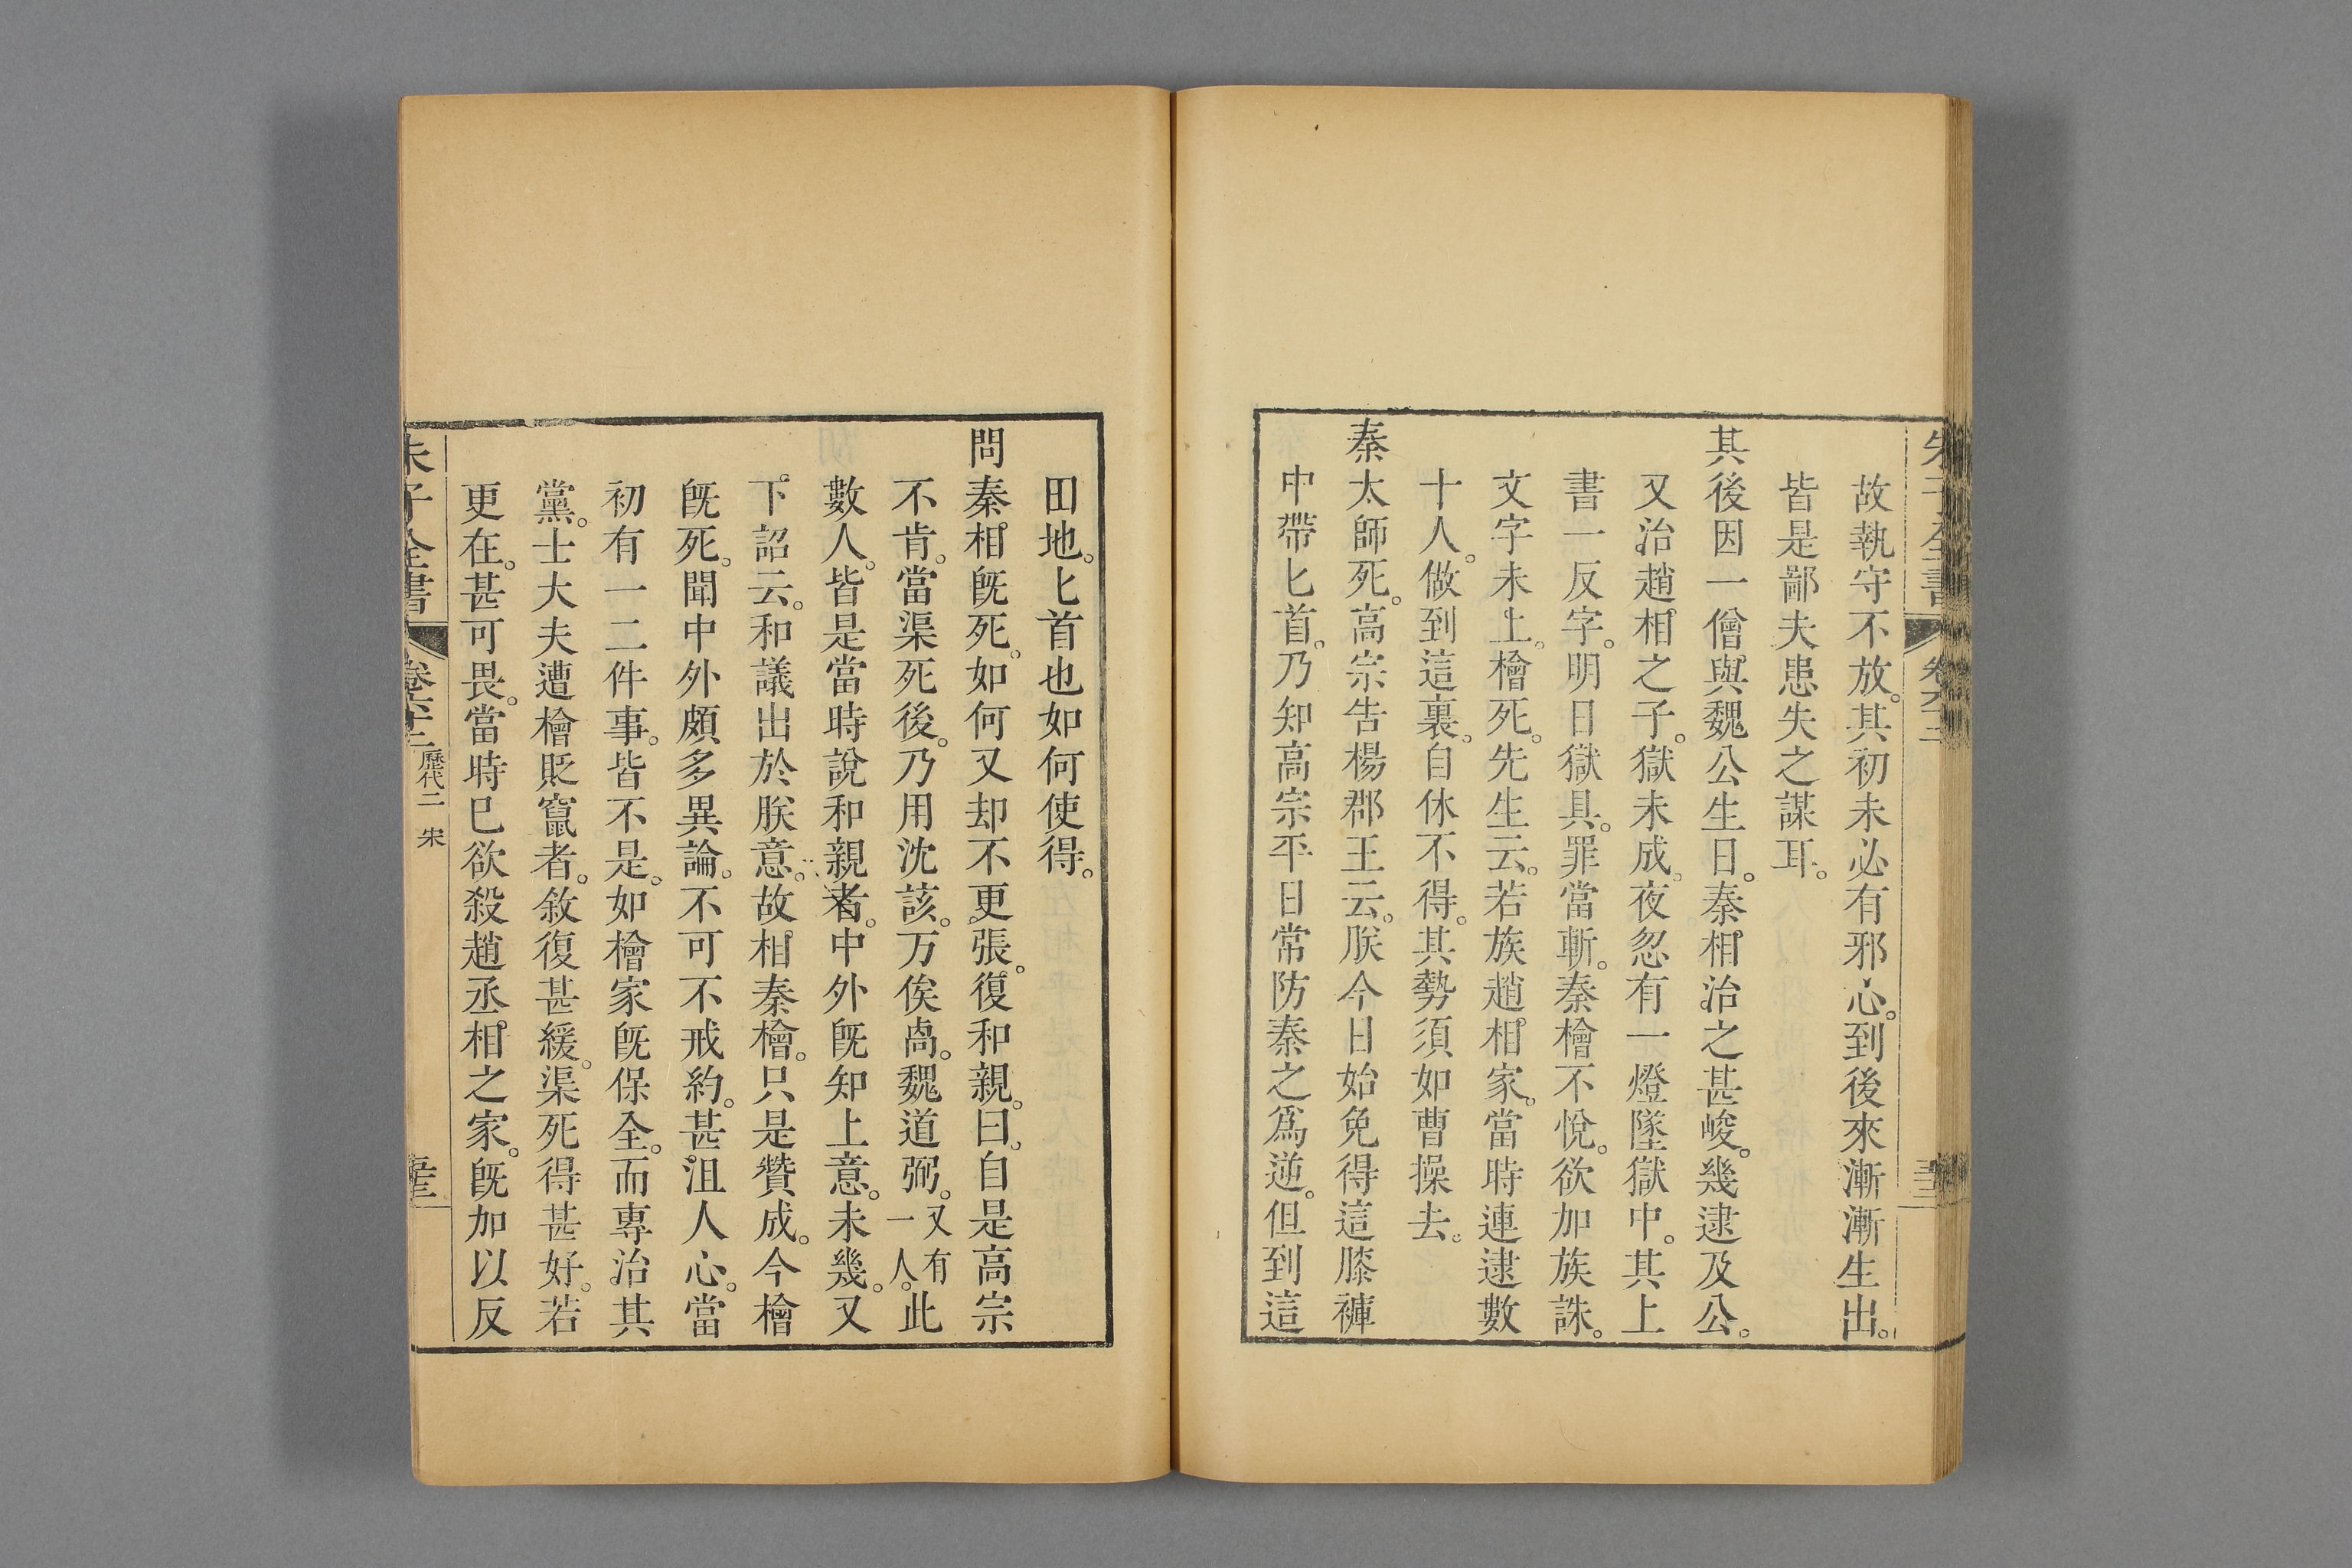 故執守不放。其初未必有邪心。到後來漸漸生出。
皆是鄙夫患失之謀耳。
其後因一僧與魏公生日。秦相治之甚峻。幾逮及公。
又治趙相之子。獄未成。夜忽有一燈墜獄中。其上
書一反字。明日獄具。罪當斬。秦檜不悅。欲加族誅。
文字未上。檜死。先生云。若族趙相家。當時連逮數
十人。做到這裏。自休不得。其勢須如曹操去。
秦太師死。高宗告楊郡王云。朕今日始免得這膝褲
中帶匕首。乃知高宗平日常防秦之爲逆。但到這
田地。匕首也如何使得。
問秦相旣死。如何又却不更張。復和親。曰。自是高宗
不肯。當渠死後。乃用沈該。万俟卨。魏道弼。又有一人。此
數人。皆是當時說和親者。中外旣知上意。未幾。又
下詔云。和議出於朕意。故相秦檜。只是贊成。今檜
旣死。聞中外頗多異論。不可不戒約。甚沮人心。當
初有一二件事。皆不是。如檜家旣保全。而專治其
黨。士大夫遭檜貶竄者。敘復甚緩。渠死得甚好。若
更在。甚可畏。當時已欲殺趙丞相之家。旣加以反
朱子全書 卷六十三 歷代二 宋